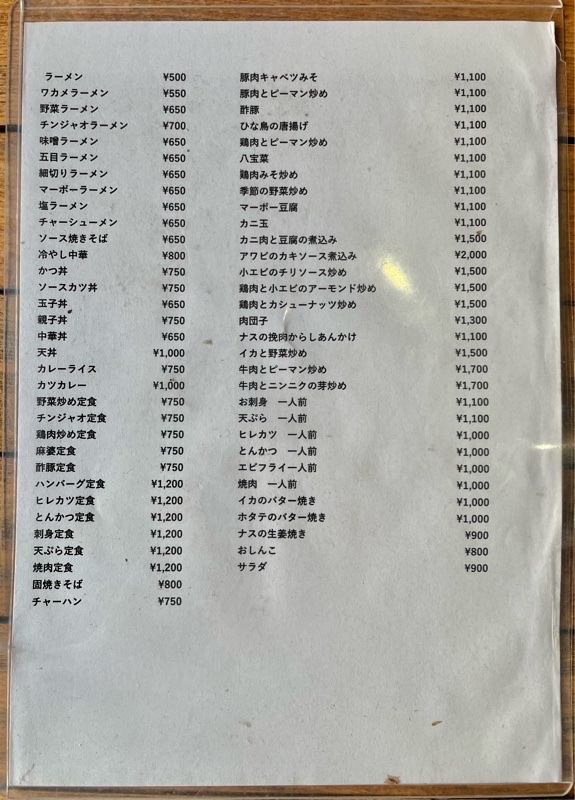 ラーメン ¥500
ワカメラーメン ¥550
野菜ラーメン ¥650
チンジャオラーメン ¥700
味噌ラーメン ¥650
五目ラーメン ¥650
細切りラーメン ¥650
マーボーラーメン ¥650
塩ラーメン ¥650
チャーシューメン ¥650
ソース焼きそば ¥650
冷やし中華 ¥800
かつ丼 ¥750
ソースカツ丼 ¥750
玉子丼 ¥650
親子丼 ¥750
中華丼 ¥650
天丼 ¥1,000
カレーライス ¥750
カツカレー ¥1,000
野菜炒め定食 ¥750
チンジャオ定食 ¥750
鶏肉炒め定食 ¥750
麻婆定食 ¥750
酢豚定食 ¥750
ハンバーグ定食 ¥1,200
ヒレカツ定食 ¥1,200
とんかつ定食 ¥1,200
刺身定食 ¥1,200
天ぷら定食 ¥1,200
焼肉定食 ¥1,200
固焼きそば ¥800
チャーハン ¥750
豚肉キャベツみそ ¥1,100
豚肉とピーマン炒め ¥1,100
酢豚 ¥1,100
ひな鳥の唐揚げ ¥1,100
鶏肉とピーマン炒め ¥1,100
八宝菜 ¥1,100
鶏肉みそ炒め ¥1,100
季節の野菜炒め ¥1,100
マーボー豆腐 ¥1,100
カニ玉 ¥1,100
カニ肉と豆腐の煮込み ¥1,500
アワビのカキソース煮込み ¥2,000
小エビのチリソース炒め ¥1,500
鶏肉と小エビのアーモンド炒め ¥1,500
鶏肉とカシューナッツ炒め ¥1,500
肉団子 ¥1,300
ナスの挽肉からしあんかけ ¥1,100
イカと野菜炒め ¥1,500
牛肉とピーマン炒め ¥1,700
牛肉とニンニクの芽炒め ¥1,700
お刺身 一人前 ¥1,100
天ぷら 一人前 ¥1,100
ヒレカツ 一人前 ¥1,000
とんかつ 一人前 ¥1,000
エビフライ一人前 ¥1,000
焼肉 一人前 ¥1,000
イカのバター焼き ¥1,000
ホタテのバター焼き ¥1,000
ナスの生姜焼き ¥900
おしんこ ¥800
サラダ ¥900